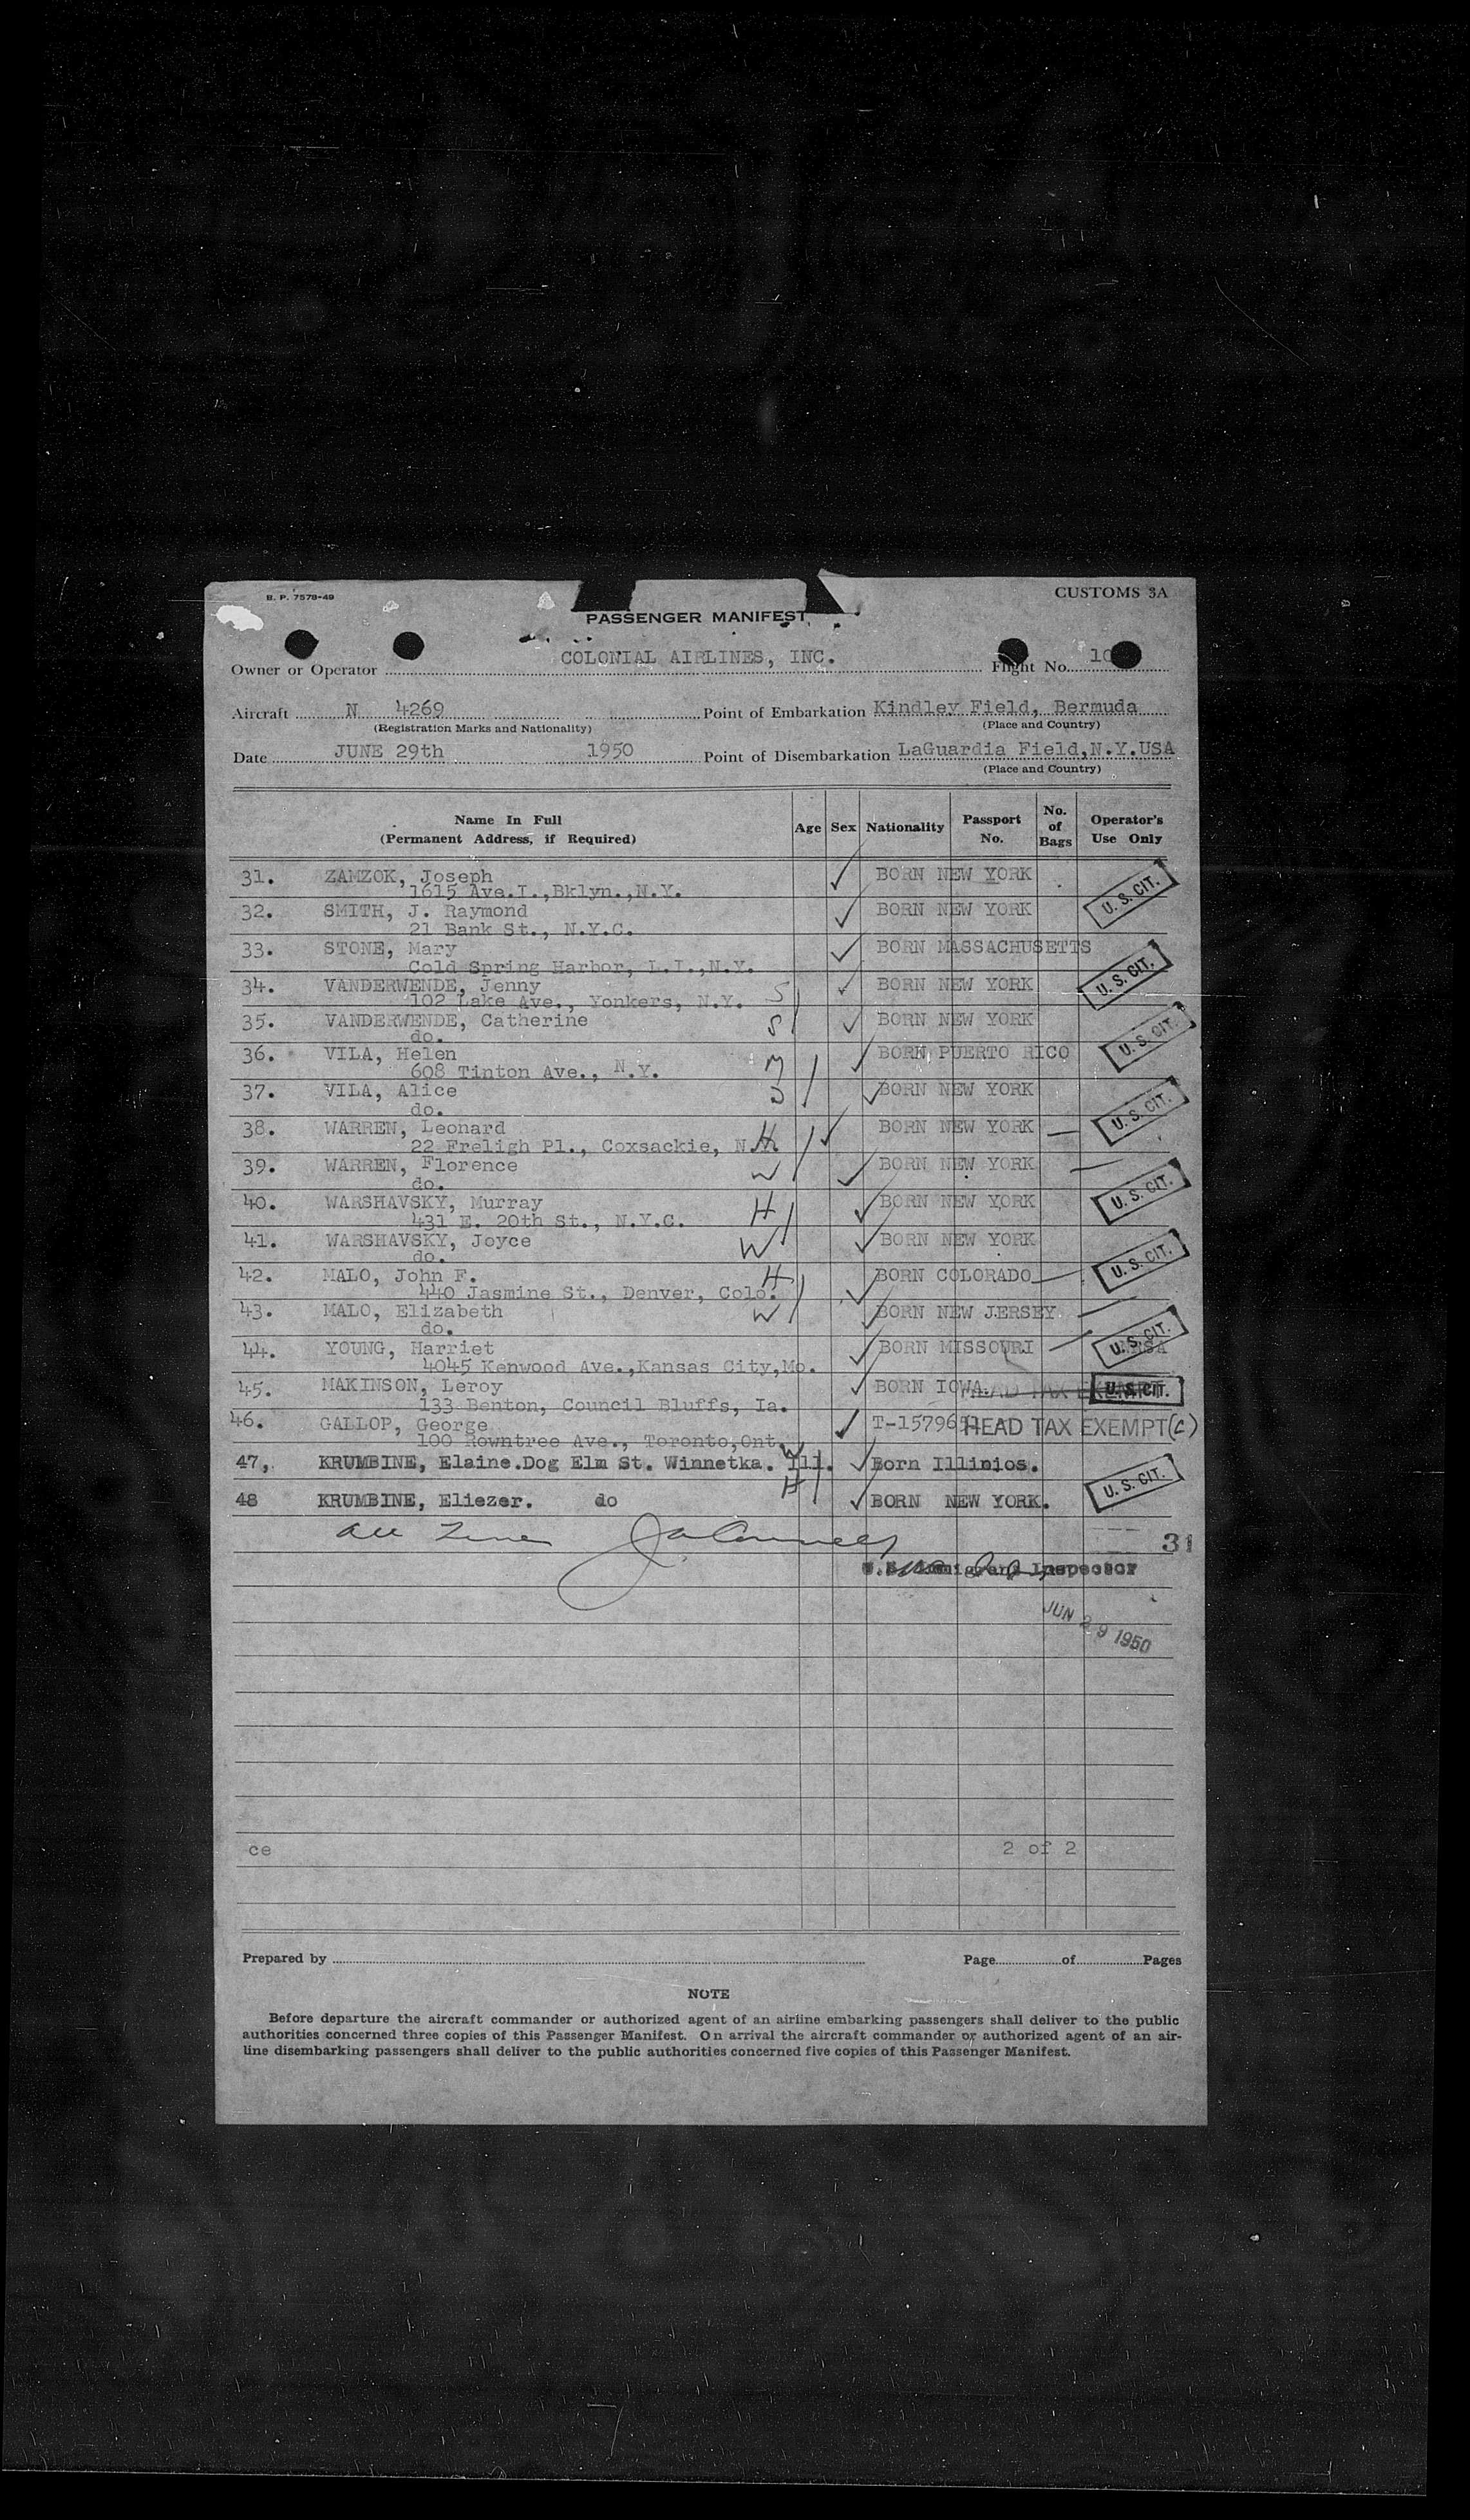 B. P. 7578-49
CUSTOMS 3A
PASSENGER MANIFEST
Owner or Operator COLONIAL AIRLINES, INC. Flight No. 10
Aircraft N 4269 Point of Embarkation Kindley Field, Bermuda
(Registration Marks and Nationality) (Place and Country)
Date JUNE 29th 1950 Point of Disembarkation LaGuardia Field,N.Y.USA
(Place and Country)
Name In Full (Permanent Address, if Required) Age Sex Nationality Passport No. No. of Bags Operator's Use Only
31. ZAMZOK, Joseph BORN NEW YORK
1615 Ave.I.,Bklyn.,N.Y. U. S. CIT.
32. SMITH, J. Raymond BORN NEW YORK
21 Bank St., N.Y.C.
33. STONE, Mary BORN MASSACHUSETTS
Cold Spring Harbor, L.I.,N.Y. U. S. CIT.
34. VANDERWENDE, Jenny S BORN NEW YORK
102 Lake Ave., Yonkers, N.Y.
35. VANDERWENDE, Catherine S BORN NEW YORK U. S. CIT.
do.
36. VILA, Helen M BORN PUERTO RICO
608 Tinton Ave., N.Y.
37. VILA, Alice D BORN NEW YORK U. S. CIT.
do.
38. WARREN, Leonard H BORN NEW YORK
22 Freligh Pl., Coxsackie, N.Y.
39. WARREN, Florence W BORN NEW YORK U. S. CIT.
do.
40. WARSHAVSKY, Murray H BORN NEW YORK
431 E. 20th St., N.Y.C.
41. WARSHAVSKY, Joyce W BORN NEW YORK U. S. CIT.
do.
42. MALO, John F. H BORN COLORADO
440 Jasmine St., Denver, Colo.
43. MALO, Elizabeth W BORN NEW JERSEY U. S. CIT.
do.
44. YOUNG, Harriet BORN MISSOURI USA
4045 Kenwood Ave.,Kansas City,Mo.
45. MAKINSON, Leroy BORN IOWA. HEAD TAX EXEMPT U. S. CIT.
133 Benton, Council Bluffs, Ia.
46. GALLOP, George T-15796 HEAD TAX EXEMPT (C)
100 Rowntree Ave., Toronto,Ont.
47, KRUMBINE, Elaine.Dog Elm St. Winnetka. Ill. W Born Illinios.
48 KRUMBINE, Eliezer. do H BORN NEW YORK. U. S. CIT.
All
31
Immigrant Inspector
JUN 29 1950
ce 2 of 2
Prepared by Page of Pages
NOTE
Before departure the aircraft commander or authorized agent of an airline embarking passengers shall deliver to the public
authorities concerned three copies of this Passenger Manifest. On arrival the aircraft commander or authorized agent of an air-
line disembarking passengers shall deliver to the public authorities concerned five copies of this Passenger Manifest.